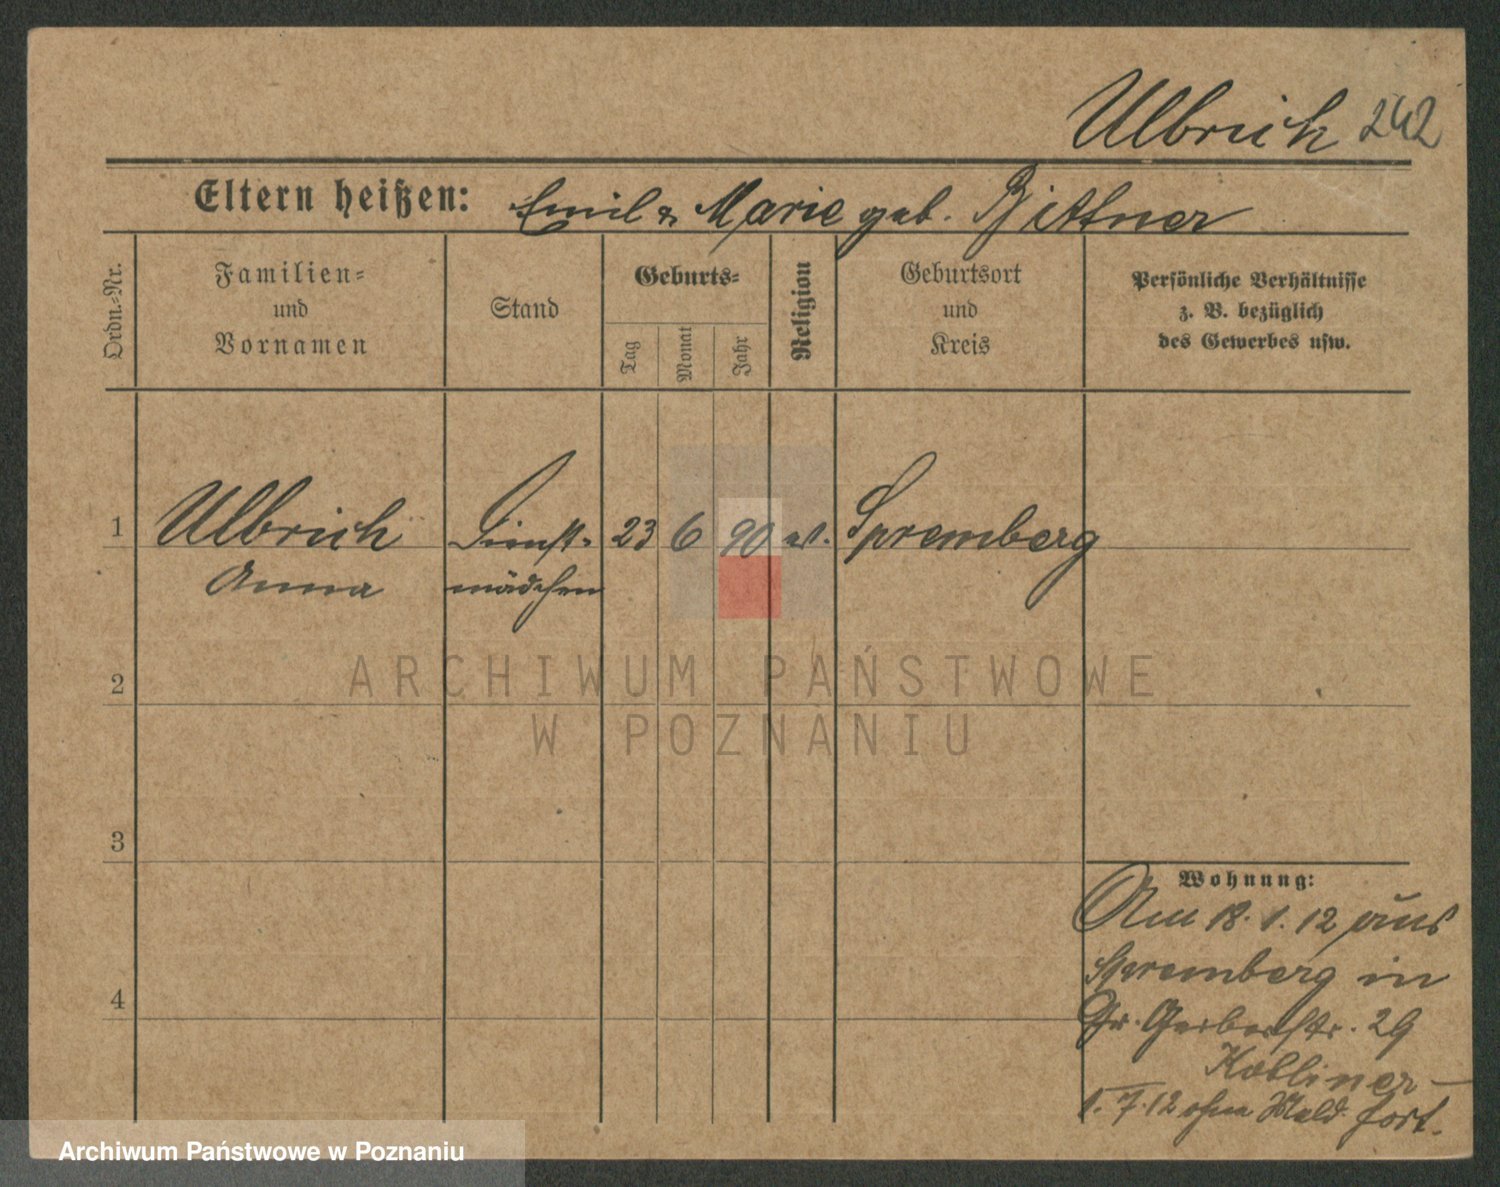 Ulbrich 242
Eltern heißen: Emil & Marie geb. Bittner
Ordn.=Nr.
Familien=
und
Vornamen
Stand
Geburts=
Tag
Monat
Jahr
Religion
Geburtsort
und
Kreis
Persönliche Verhältnisse
z. B. bezüglich
des Gewerbes usw.
1 Ulbrich Dienst- 23 6 90 ev. Spremberg
Anna mädchen
2
ARCHIWUM PAŃSTWOWE
W POZNANIU
3
Wohnung:
Am 18. 1. 12 aus
Spremberg in
4
Gr. Gerberstr. 29
Kobliner
1. 7. 12 ohne Meld. fort.
Archiwum Państwowe w Poznaniu